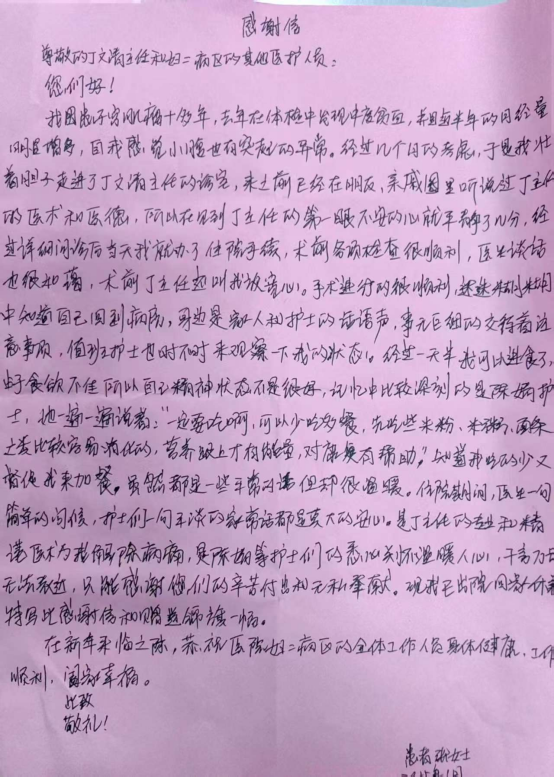 感谢信
尊敬的丁文清主任和妇二病区的其他医护人员：
您们好！
我因患子宫肌瘤十多年，去年在体检中发现中度贫血，并且每半年的月经量
明显增多，自我感觉小腹也有突起的异常。经过几个月的考虑，于是我壮
着胆子走进了丁文清主任的诊室，来之前已经在朋友，亲戚圈里听说过丁主任
的医术和医德，所以在见到丁主任的第一眼不安的心就平静了几分，经
过详细问诊后当天我就办了住院手续，术前各项检查很顺利，医生谈话
也很和蔼，术前丁主任还叫我放宽心。手术进行的很顺利，迷迷糊糊
中知道自己回到病房，身边是家人和护士的话语声，事无巨细的交待着注
意事项，值班护士也时不时来观察一下我的状态。经过一天半我可以进食了，
由于食欲不佳所以自己精神状态不是很好，记忆中比较深刻的是陈娟护
士，她一遍一遍说着："一定要吃啊，可以少吃多餐，先吃些米粉、米糊、面条
之类比较容易消化的，营养跟上才有能量，对康复有帮助。"知道我吃的少又
督促我来加餐。虽然都是一些平常的话但却很温暖。住院期间，医生一句
简单的问候，护士们一句平淡的家常话都是莫大的安心。是丁主任的专业和精
湛医术为我解除病痛，是陈娟等护士们的悉心关怀温暖人心，千言万语
无以表达，只能感谢您们的辛苦付出和无私奉献。现我已出院回家
特写此感谢信和赠送锦旗一幅。
在新年来临之际，恭祝医院妇二病区的全体工作人员身体健康，工作
顺利，阖家幸福。
此致
敬礼！
患者 女士